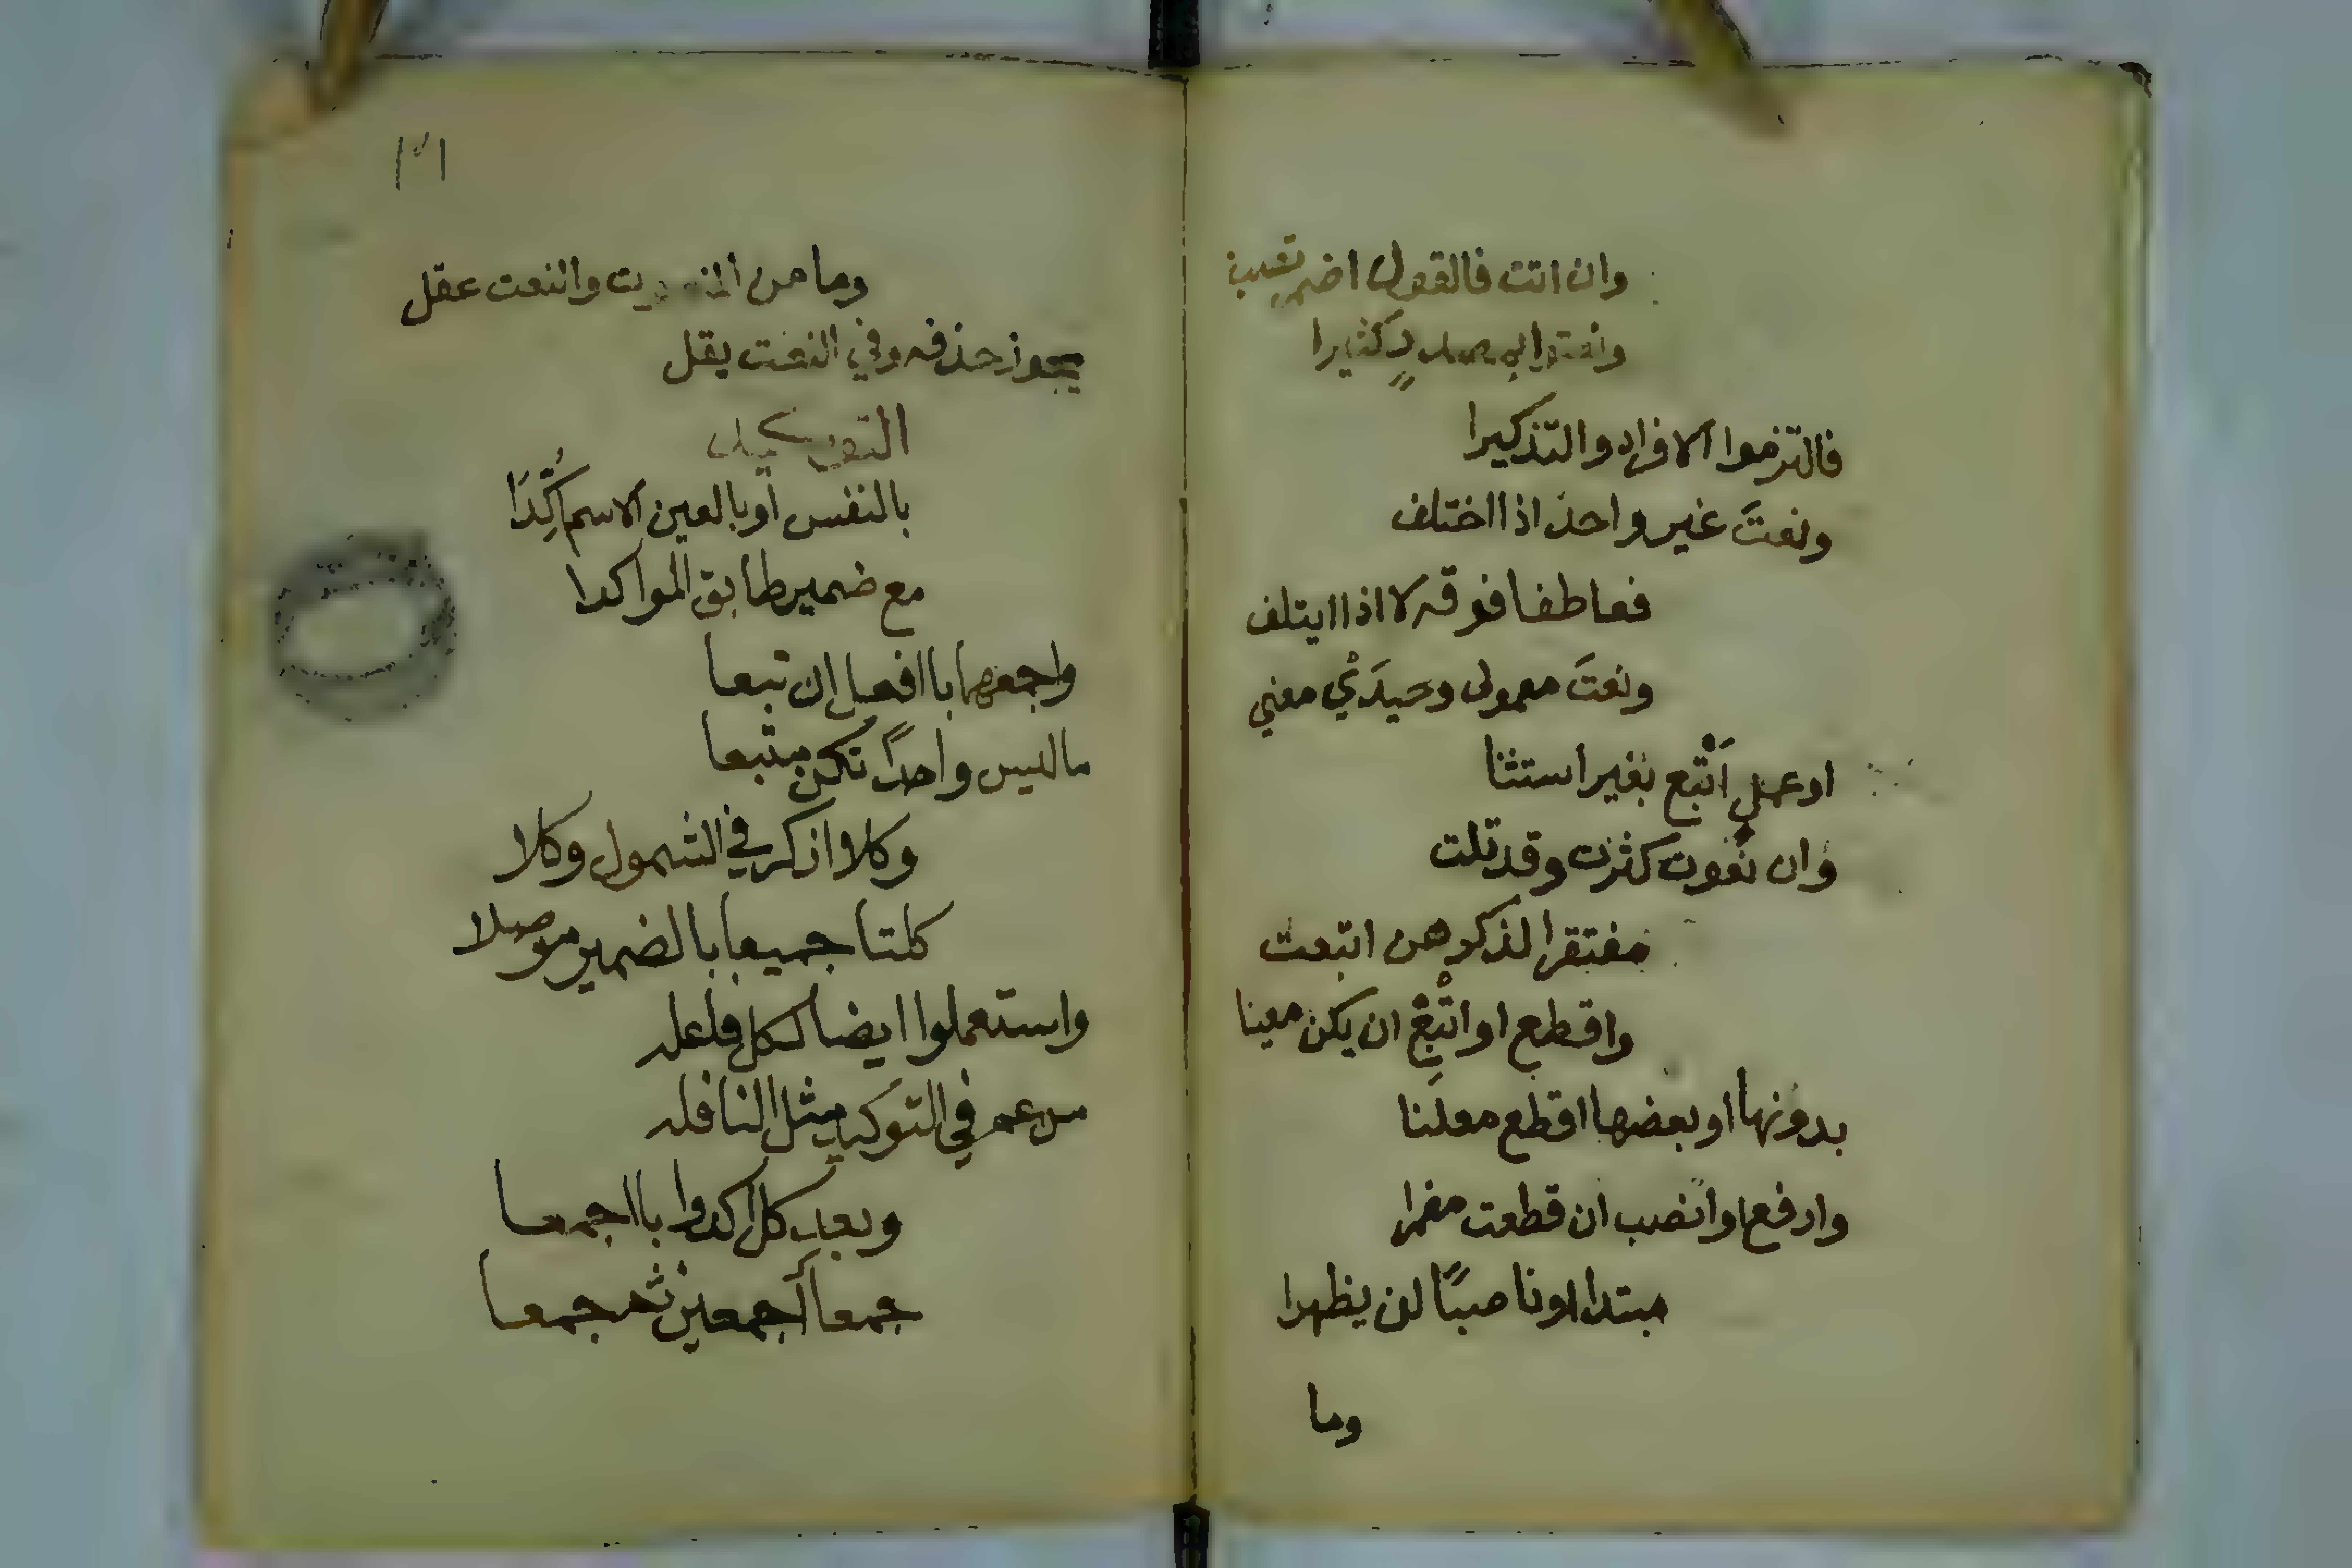 وان اتت فالقول اضمر تصب
ونعتوا بمصدر كثيرا
فالتزموا الافراد والتذكيرا
ونعتَ غير واحد اذا اختلف
فعاطفا فرقه لا اذا ايتلف
ونعتَ معمولى وحيدَيْ معني
وعمل اَتْبع بغير استثنا
وان نُعوت كثرت وقد تلت
مفتقرا لذكرهن اتبعت
واقطع او اتْبِعْ ان يكن معينا
بدونها او بعضها اقطع معلَنا
وارفع او انصب ان قطعت مضمرا
مبتدا او ناصبًا لن يظهرا
وما
٣١
وما من المنعوت والنعت عقل
يجوز حذفه وفي النعت يقل
التوكيد
بالنفس أو بالعين الاسم اُكِّدَا
مع ضمير طابق المواكدا
واجمعهما باافعل إن تبعا
ماليس واحدًا تكن متبعا
وكلا اذكر في الشمول وكلا
كلتا جميعا بالضمير موصلا
واستعملوا ايضا ككل فاعله
من عم في التوكيد مثل النافله
وبعد كل اكدوا بااجمعا
جمعا أجمعين ثم جمعا